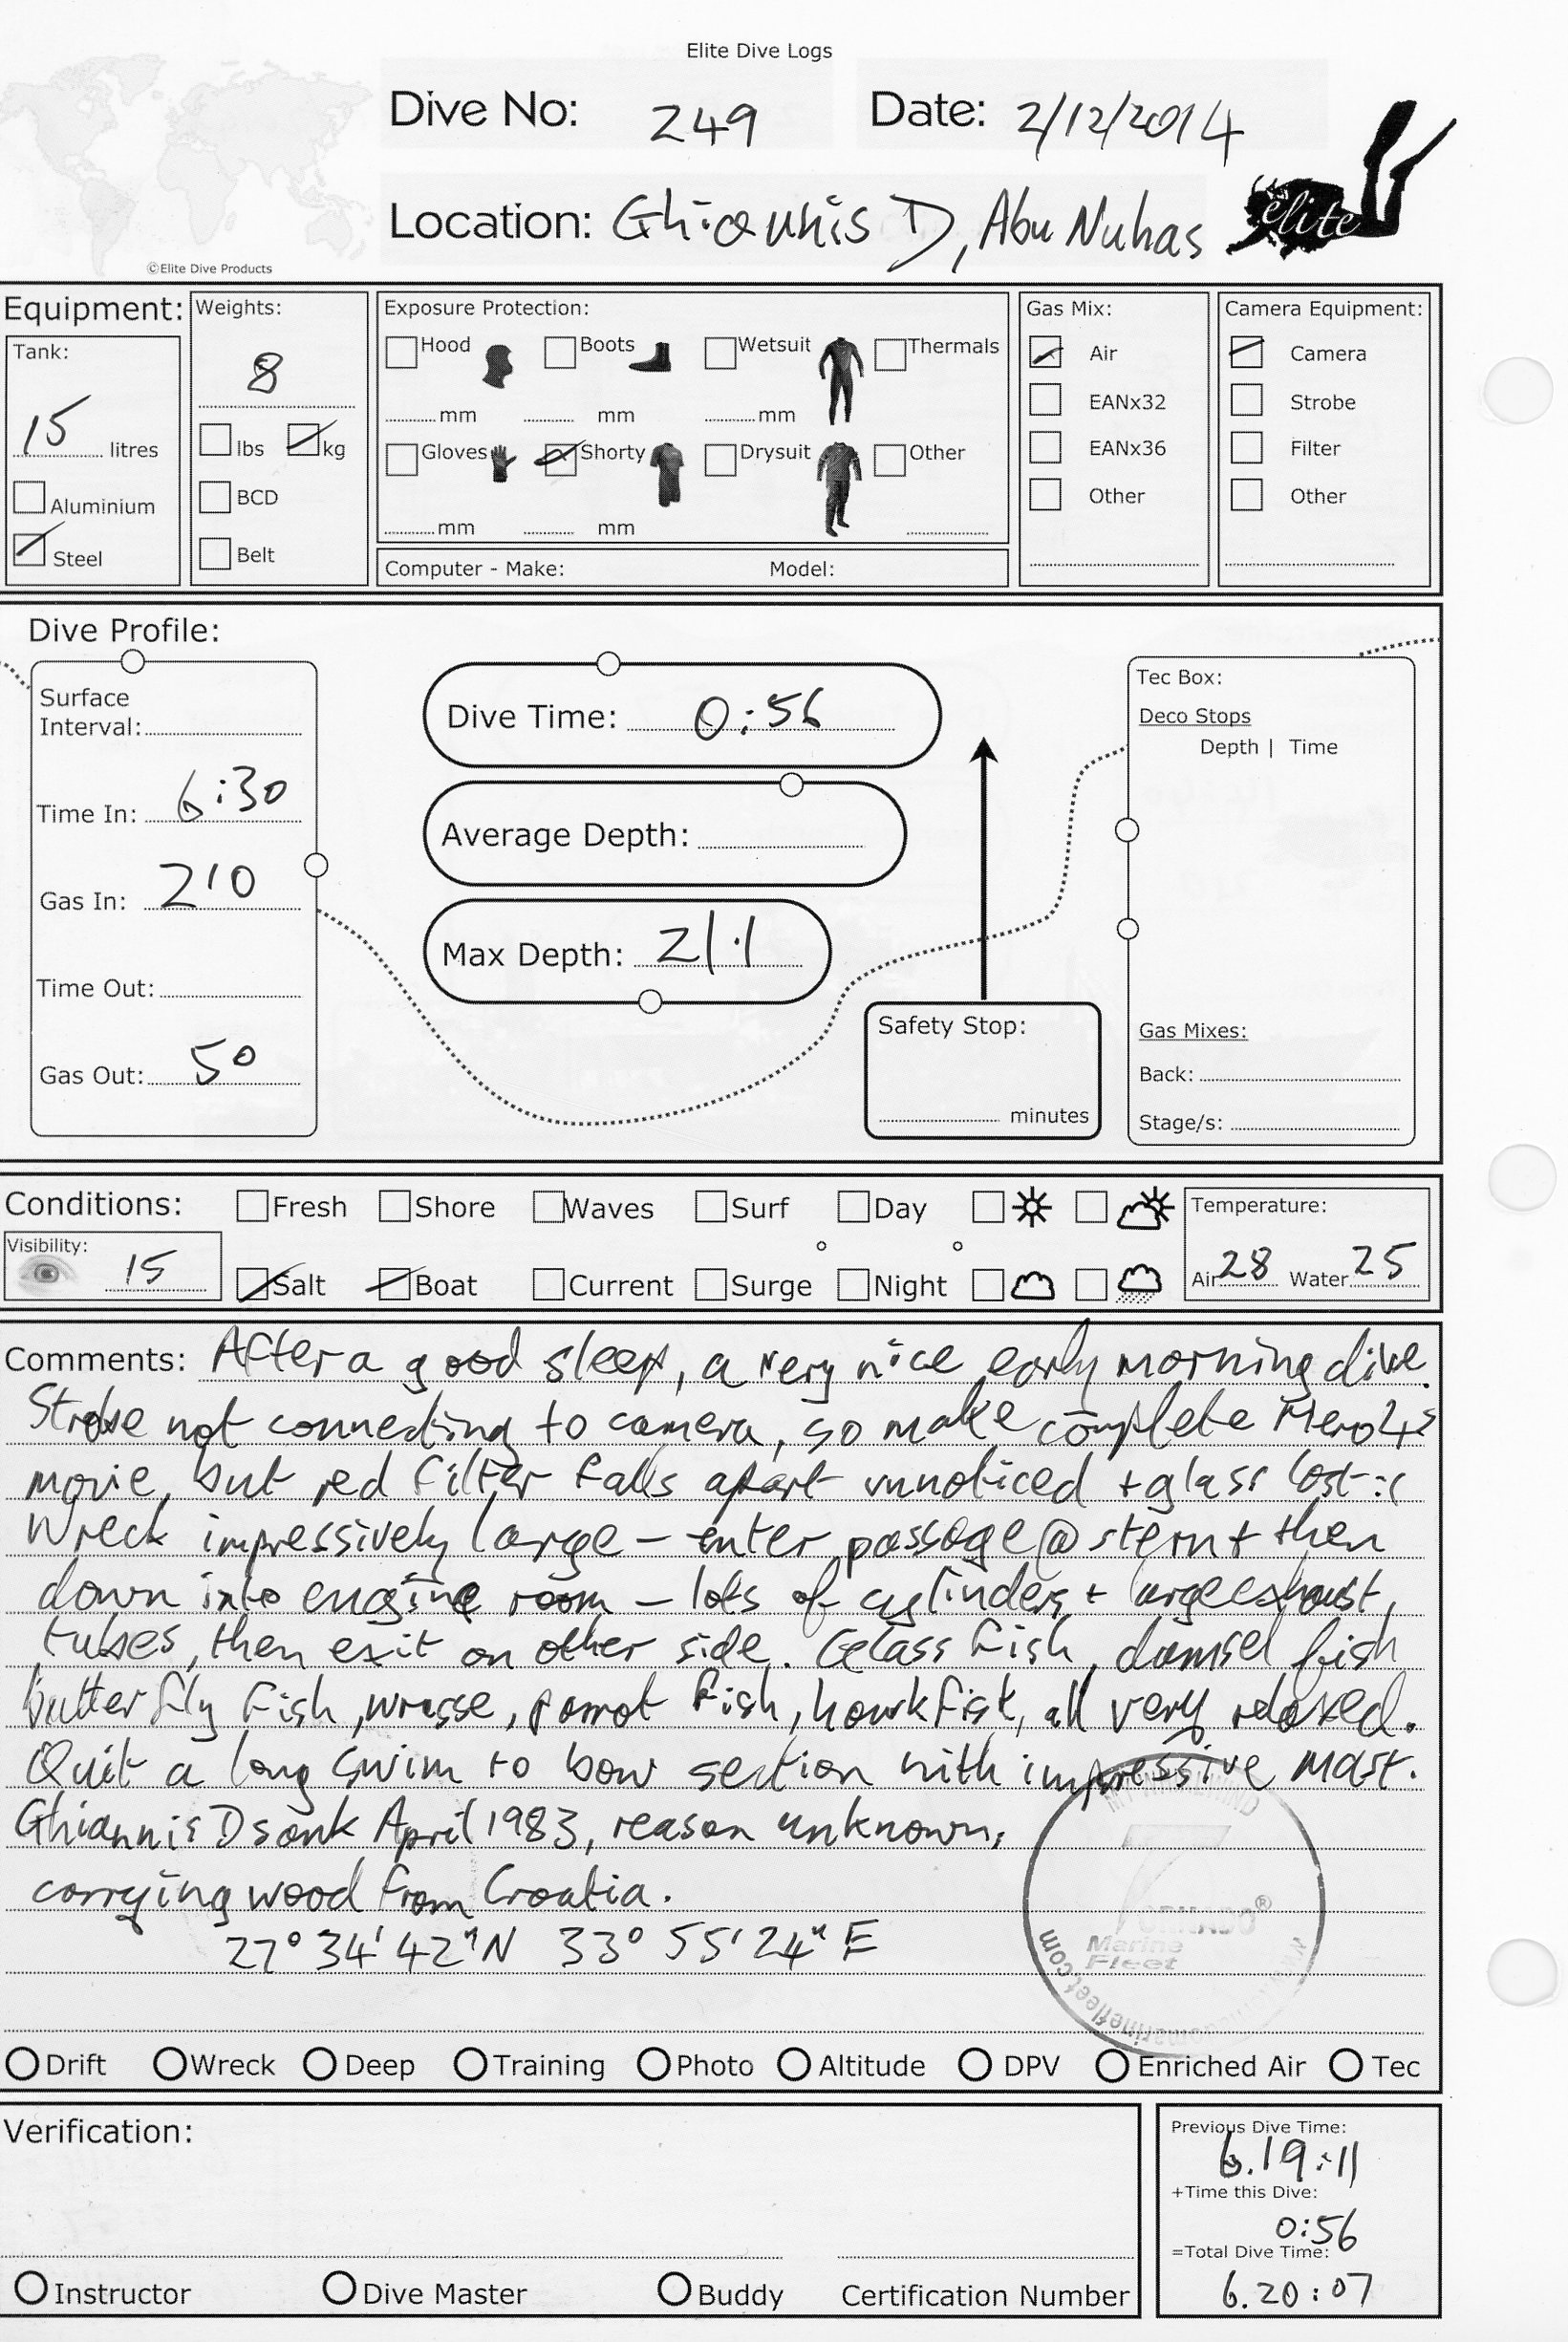 Elite Dive Logs
Dive No: 249 Date: 2/12/2014
Location: Ghiannis D, Abu Nuhas
elite
©Elite Dive Products
Equipment: Weights: Exposure Protection: Gas Mix: Camera Equipment:
Tank: 8 Hood Boots Wetsuit Thermals Air Camera
15 litres mm mm mm EANx32 Strobe
lbs kg Gloves Shorty Drysuit Other EANx36 Filter
Aluminium BCD Other Other
Steel Belt mm mm
Computer - Make: Model:
Dive Profile:
Surface
Interval:
Time In: 6:30
Gas In: 210
Time Out:
Gas Out: 50
Dive Time: 0:56
Average Depth:
Max Depth: 21.1
Safety Stop:
minutes
Tec Box:
Deco Stops
Depth | Time
Gas Mixes:
Back:
Stage/s:
Conditions: Fresh Shore Waves Surf Day Temperature:
Visibility: 15 Salt Boat Current Surge Night Air 28 Water 25
Comments: After a good sleep, a very nice early morning dive.
Strobe not connecting to camera, so make complete Hero4s
movie, but red filter falls apart unnoticed + glass lost :(
Wreck impressively large – enter passage @ stern + then
down into engine room – lots of cylinders + large exhaust
tubes, then exit on other side. Glass fish, damsel fish
butterfly fish, wrasse, parrot fish, hawkfish, all very relaxed.
Quit a long swim to bow section with impressive mast.
Ghiannis D sank April 1983, reason unknown,
carrying wood from Croatia.
27° 34' 42" N 33° 55' 24" E
M/Y WHIRLWIND
TORNADO®
Marine
Fleet
www.tornadomarinefleet.com
Drift Wreck Deep Training Photo Altitude DPV Enriched Air Tec
Verification:
Instructor Dive Master Buddy Certification Number
Previous Dive Time:
6.19:11
+Time this Dive:
0:56
=Total Dive Time:
6.20:07